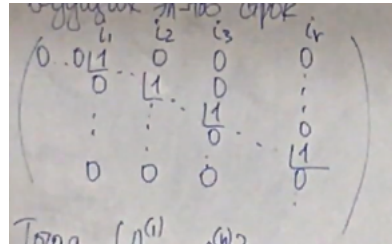 ведущих эл-тов строк
i₁ i₂ i₃ iᵣ
0 .. 0 1 0 0 0
0 1 0
1
0 0
1
0 0 0 0
Тогда